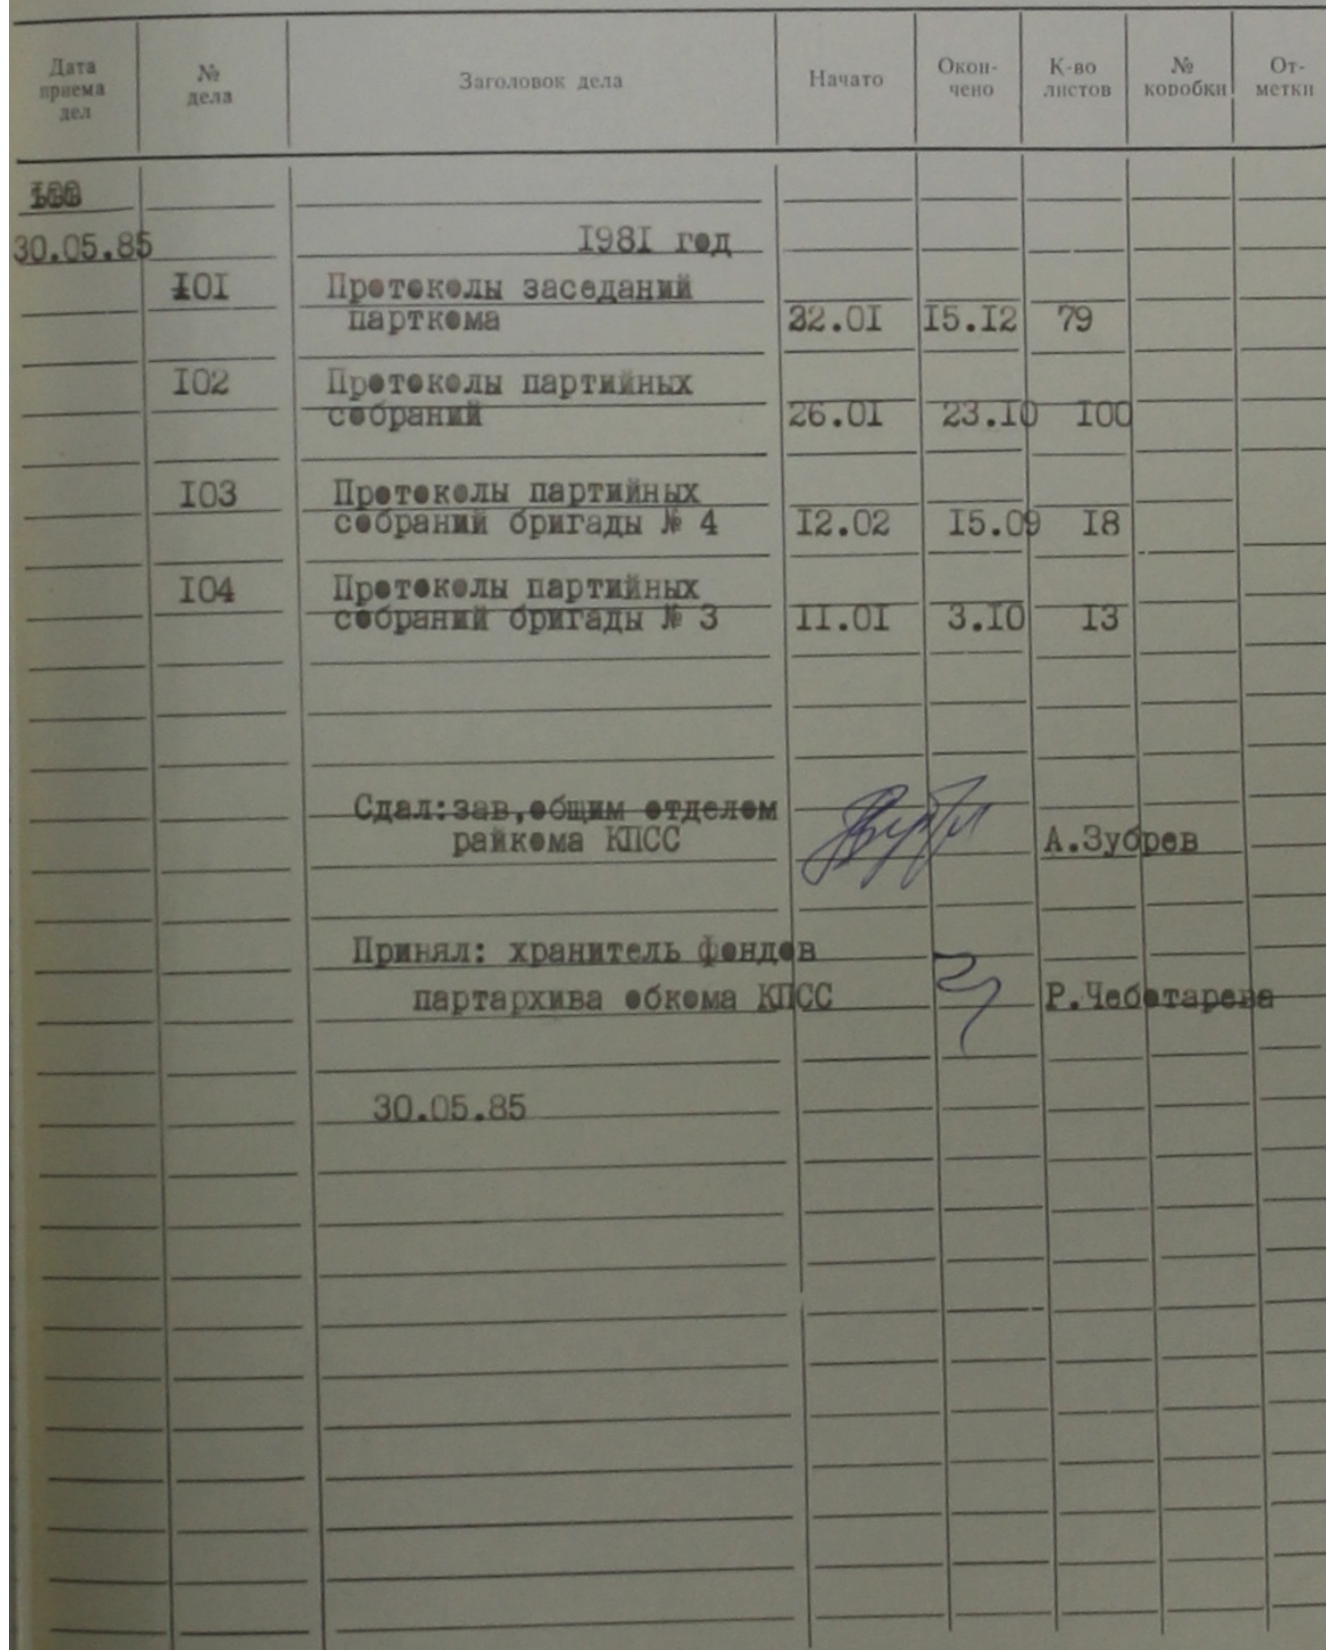 Дата приема дел № дела Заголовок дела Начато Окон-чено К-во листов № коробки От-метки
30.05.85 1981 год
101 Протоколы заседаний
парткома 22.01 15.12 79
102 Протоколы партийных
собраний 26.01 23.10 100
103 Протоколы партийных
собраний бригады № 4 12.02 15.09 18
104 Протоколы партийных
собраний бригады № 3 11.01 3.10 13
Сдал:зав,общим отделом
райкома КПСС А.Зубрев
Принял: хранитель фондов
партархива обкома КПСС Р.Чеботарева
30.05.85